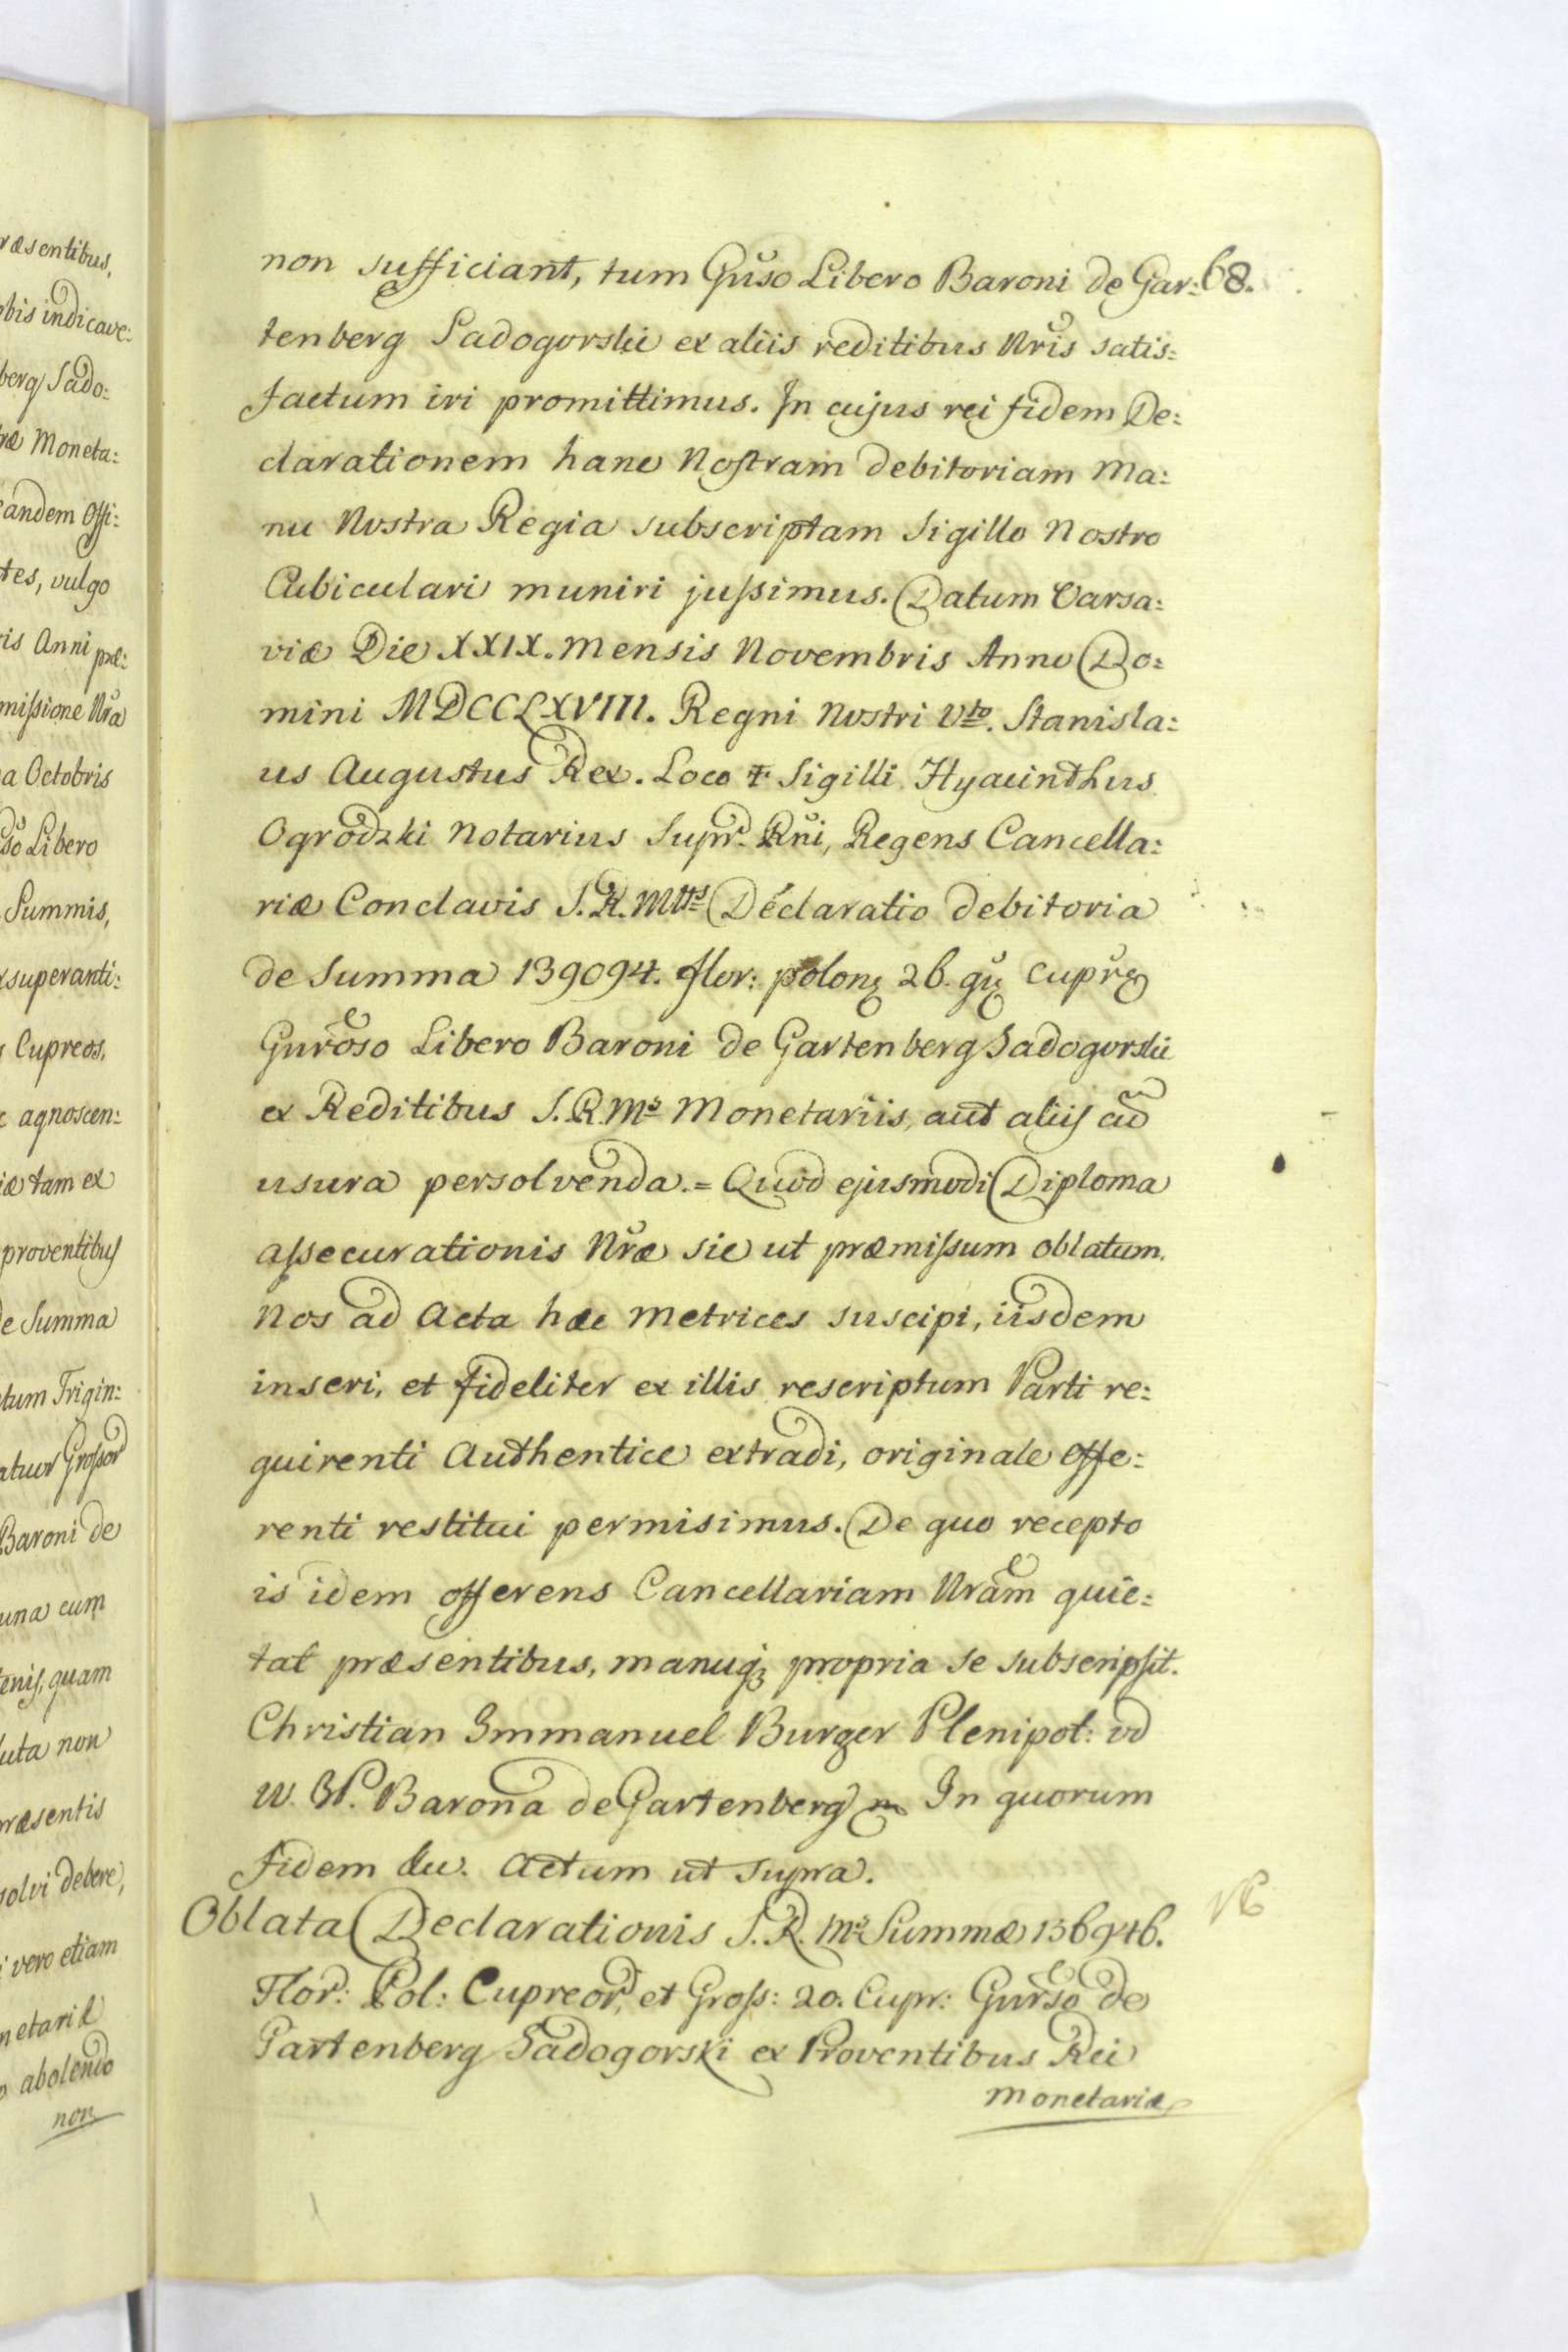 68.
non sufficiant, tum Gnso Libero Baroni de Gar:
tenberg Sadogorski ex aliis reditibus Nris satis:
factum iri promittimus. In cujus rei fidem De:
clarationem hanc Nostram debitoriam Ma:
nu Nostra Regia subscriptam Sigillo Nostro
Cubiculari muniri jussimus. Datum Varsa:
viæ Die XXIX. Mensis Novembris Anno Do:
mini MDCCLXVIII. Regni Nostri Vto. Stanisla:
us Augustus Rex. Loco ✝ Sigilli Hyacinthus
Ogrodzki Notarius Supr. Rni, Regens Cancella:
riæ Conclavis S.R.Mttis Declaratio debitoria
de Summa 139094. flor: polon 26. gr cupr
Gnroso Libero Baroni de Gartenberg Sadogorski
ex Reditibus S.R.Ms Monetariis, aut aliis cum
usura persolvenda.= Quod ejusmodi Diploma
assecurationis Nræ sic ut præmissum oblatum.
Nos ad Acta hæc Metrices suscipi, iisdem
inseri, et fideliter ex illis rescriptum Parti re:
quirenti Authentice extradi, originale offe:
renti restitui permisimus. De quo recepto
is idem offerens Cancellariam Nram quie:
tat præsentibus, manuq propria se subscripsit.
Christian Immanuel Burger Plenipot: od
W. JP. Barona de Gartenberg In quorum
fidem &c. Actum ut supra.
Oblata Declarationis S.R.Ms Summæ 136946.
Flor: Pol: Cupreor, et Gross: 20. Cupr: Gnrso de
Gartenberg Sadogorski ex Proventibus Rei
Monetariæ
ræsentibus,
obis indicave:
berg Sado:
ræ Moneta:
eandem Offi:
tes, vulgo
ris Anni præ:
missione Nra
a Octobris
so Libero
Summis,
xsuperanti:
s Cupreos,
c agnoscen:
iæ tam ex
proventibus
de Summa
tum Trigin:
atuor Grossor
Baroni de
una cum
enis, quam
luta non
ræsentis
solvi debere,
i vero etiam
netariæ
o abolendo
non